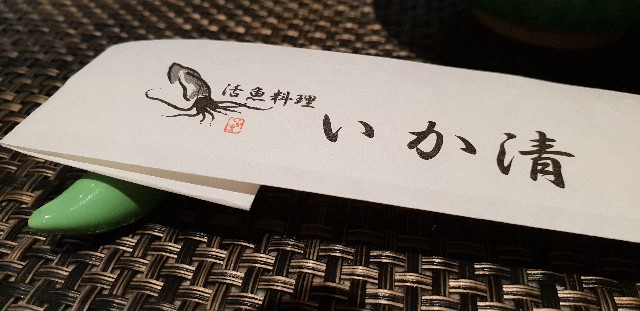 活魚料理
いか清